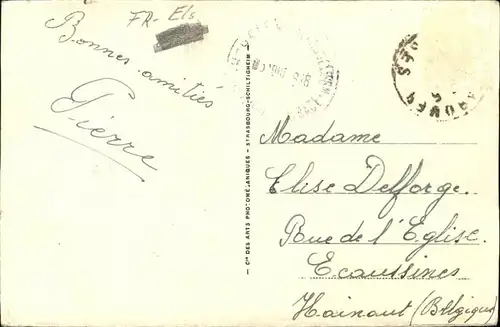 FR- Els
Bonnes amitiés
Pierre
Cie DES ARTS PHOTOMÉCANIQUES - STRASBOURG-SCHILTIGHEIM
Madame
Elise Delforge.
Rue de l'Eglise.
Ecaussines
Hainaut (Belgique)